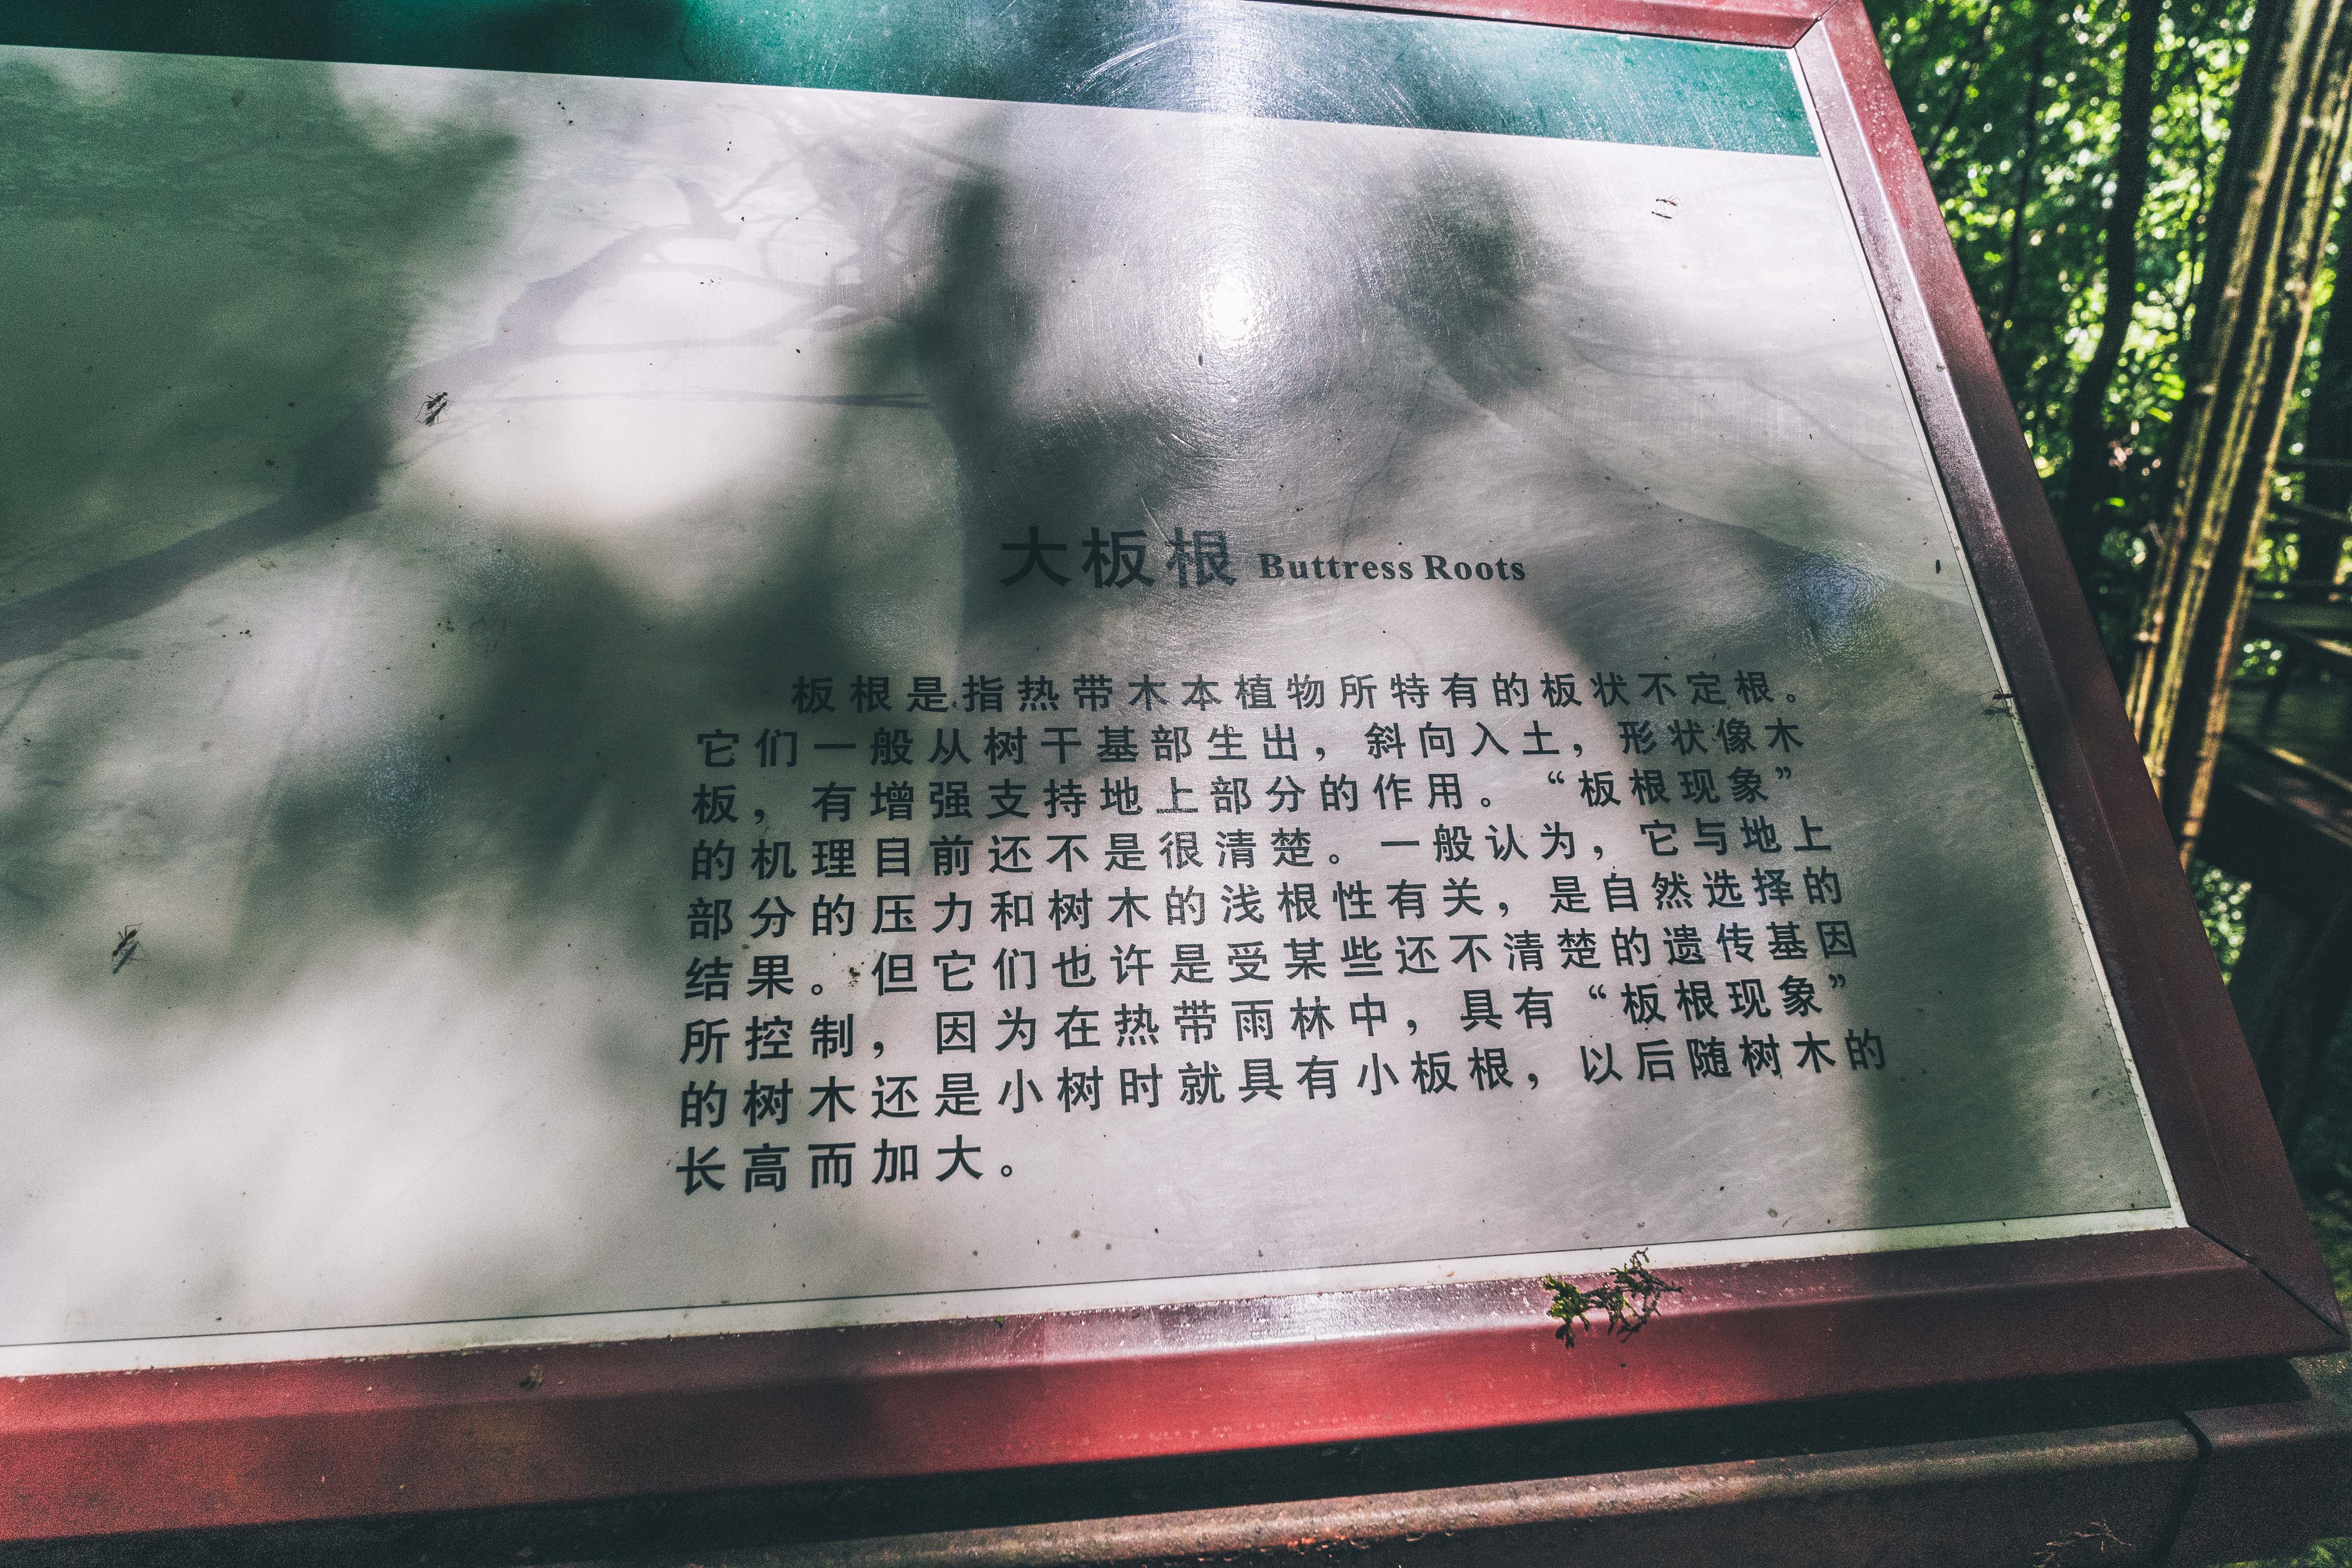 大板根 Buttress Roots
板根是指热带木本植物所特有的板状不定根。
它们一般从树干基部生出，斜向入土，形状像木
板，有增强支持地上部分的作用。“板根现象”
的机理目前还不是很清楚。一般认为，它与地上
部分的压力和树木的浅根性有关，是自然选择的
结果。但它们也许是受某些还不清楚的遗传基因
所控制，因为在热带雨林中，具有“板根现象”
的树木还是小树时就具有小板根，以后随树木的
长高而加大。